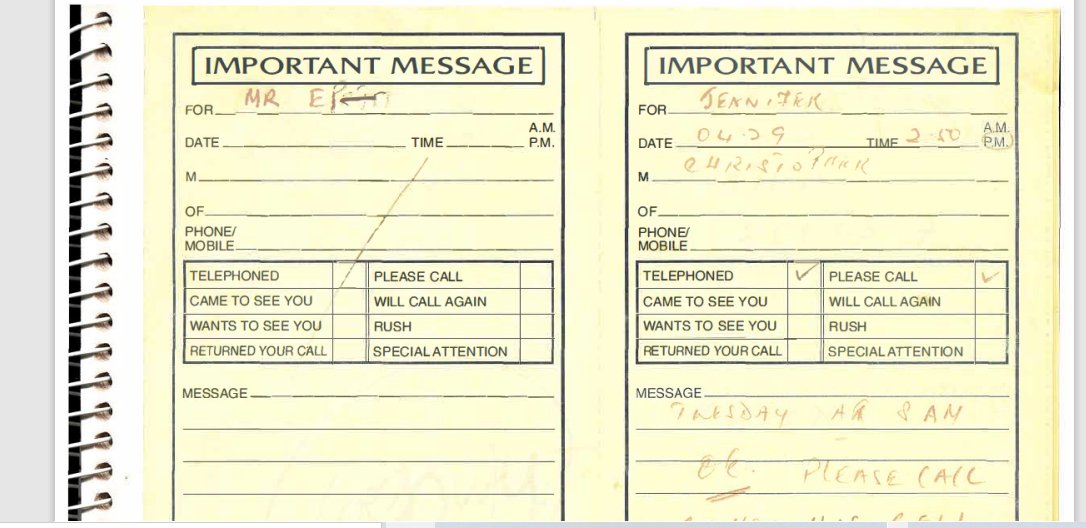 IMPORTANT MESSAGE
FOR MR
DATE TIME A.M. P.M.
M
OF
PHONE/
MOBILE
TELEPHONED PLEASE CALL
CAME TO SEE YOU WILL CALL AGAIN
WANTS TO SEE YOU RUSH
RETURNED YOUR CALL SPECIAL ATTENTION
MESSAGE
IMPORTANT MESSAGE
FOR JENNIFER
DATE 04.29 TIME 2.50 A.M. P.M.
M CHRISTOPHER
OF
PHONE/
MOBILE
TELEPHONED ✓ PLEASE CALL ✓
CAME TO SEE YOU WILL CALL AGAIN
WANTS TO SEE YOU RUSH
RETURNED YOUR CALL SPECIAL ATTENTION
MESSAGE
TUESDAY 8 AM
OK. PLEASE CALL